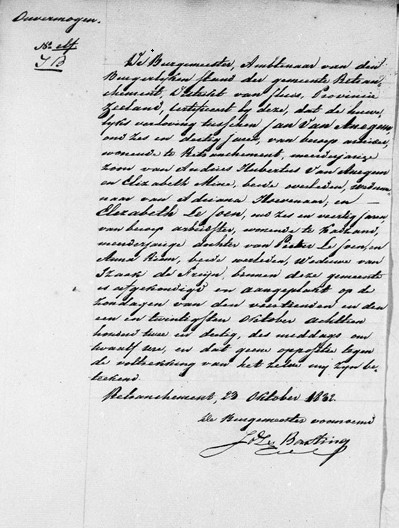 Onvermogen.
No. elf
De Burgemeester, Ambtenaar van den
Burgerlijken stand der gemeente Retran-
chement, District van Sluis, Provincie
Zeeland, certificeert bij deze, dat de huwe-
lyks verloving tusschen Jan Van Aregem
oud zes en dertig jaren, van beroep arbeider,
wonende te Retranchement, meerderjarige
zoon van Andries Hubertus Van Aregem
en Elizabeth Mine, beide overleden, weduwe-
naar van Adriana Hoevenaar, en —
Elizabeth Le Joen, oud zes en veertig jaren,
van beroep arbeidster, wonende te Kadzand,
meerderjarige dochter van Pieter Le Joen, en
Anna Riem, beide overleden, Weduwe van
Izaak de Feijn, binnen deze gemeente
is afgekondigd en aangeplakt op de
zondagen van den veertienden en den
een en twintigsten Oktober achttien
honderd twee en dertig, des middags om
twaalf ure, en dat geene oppositie tegen
de voltrekking van het zelve my zyn be-
teekend.
Retranchement, 23 Oktober 1832.
De Burgemeester voornoemd
Basting